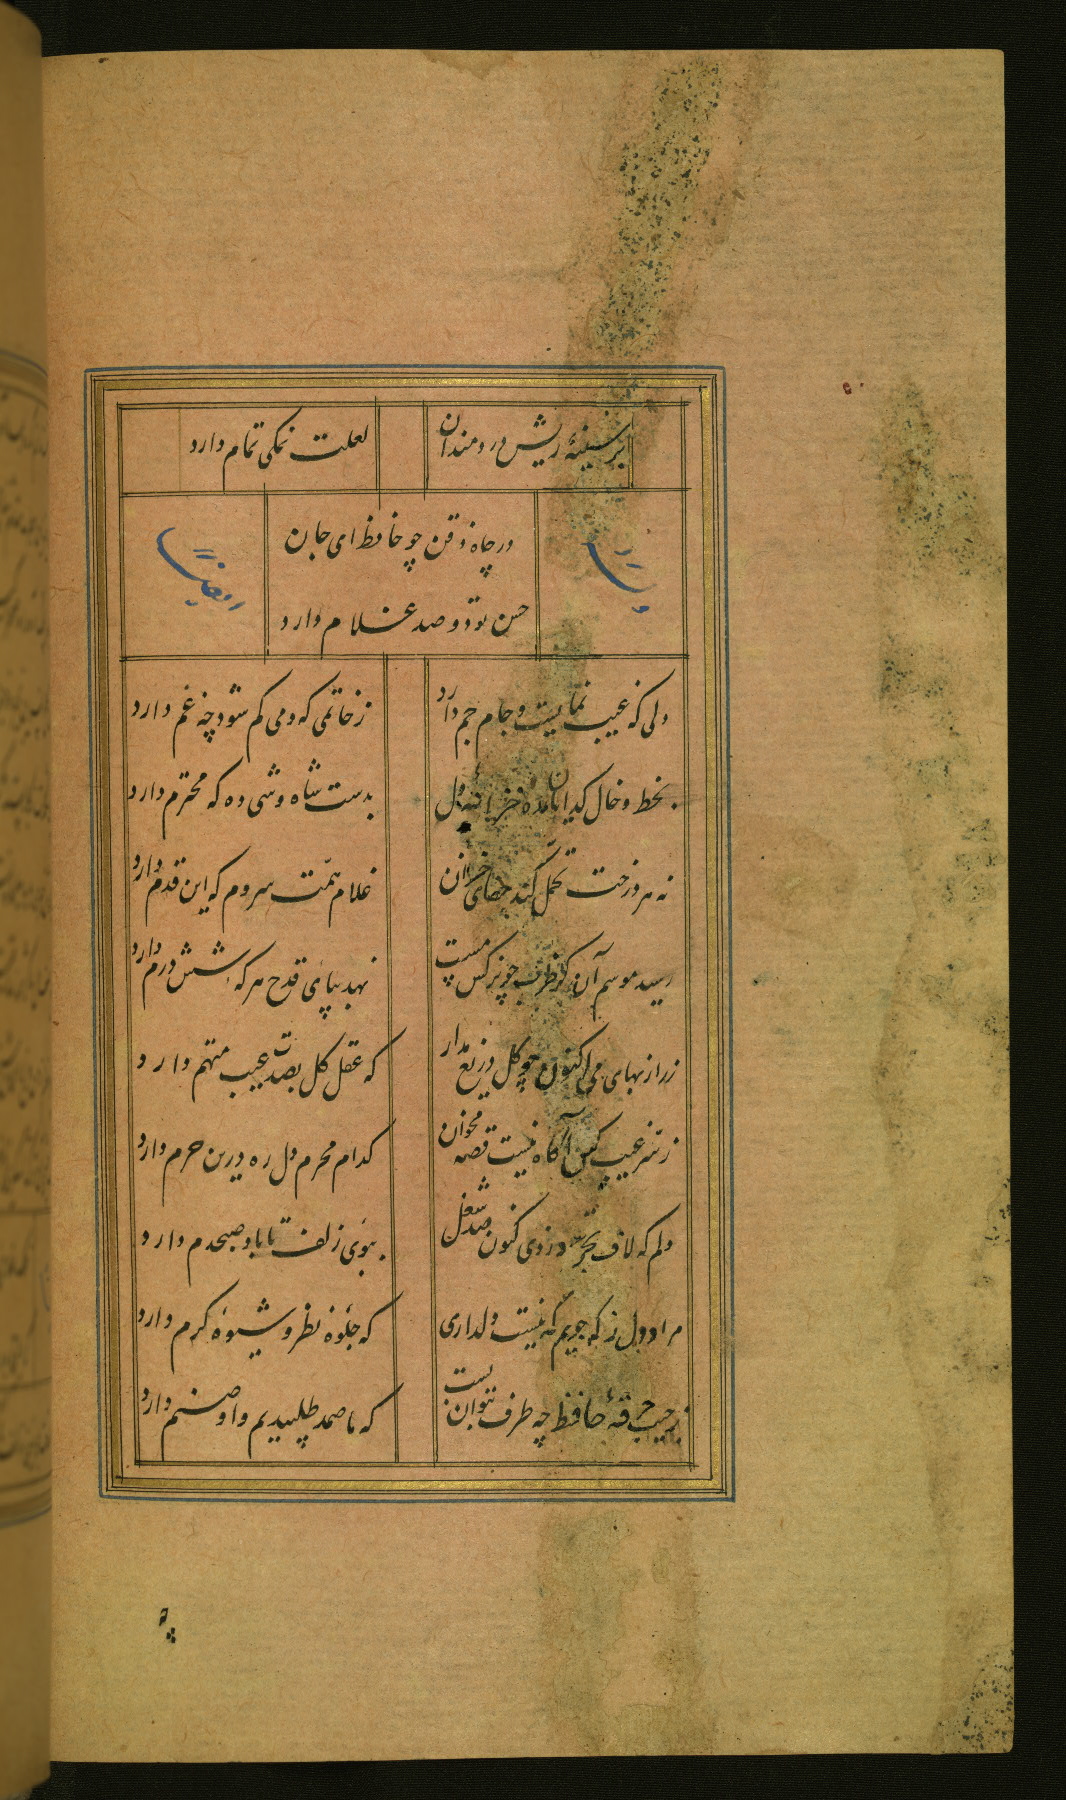 بر سینهٔ ریش دردمندان
لعلت نمکی تمام دارد
در چاه ذقن چو حافظ ای جان
حسن تو دو صد غلام دارد
دلی که غیب نمایست و جام جم دارد
ز خاتمی که دمی کم شود چه غم دارد
بخط و خال گدایان مده خزانه دل
بدست شاه وشی ده که محترم دارد
نه هر درخت تحمل کند جفای خزان
غلام همّت سروم که این قدم دارد
رسید موسم آن کز طرب چو نرکس مست
نهد بپای قدح هر که شش درم دارد
زر از بهای می اکنون چو کل دریغ مدار
که عقل کل بصدت عیب متهم دارد
ز سرّ غیب کس آکاه نیست قصه مخوان
کدام محرم دل ره درین حرم دارد
دلم که لاف تجرّد زدی کنون صد شغل
ببوی زلف تو با باد صبحدم دارد
مراد دل ز که جویم که نیست دلداری
که جلوه نظر و شیوه کرم دارد
ز جیب خرقهٔ حافظ چه طرف بتوان بست
که ما صمد طلبیدیم و او صنم دارد